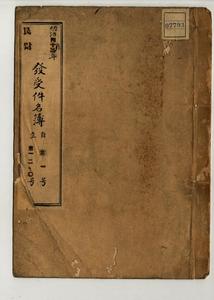 明治四十四年
民財
發受件名簿
自第一号
至第一二一〇号
07703